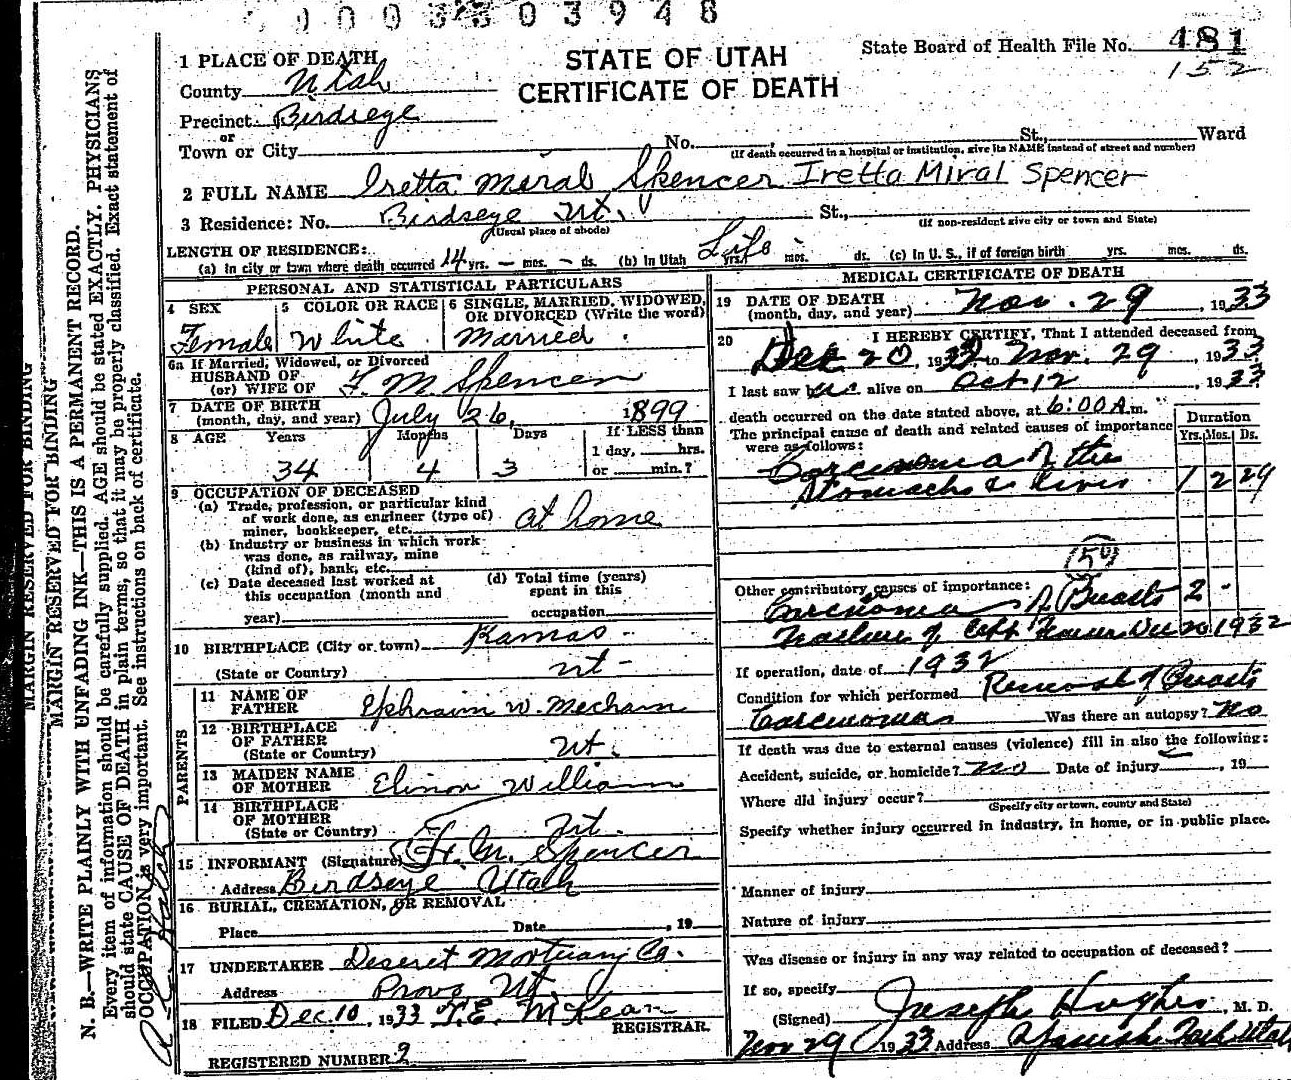 0003303948
STATE OF UTAH
CERTIFICATE OF DEATH
State Board of Health File No. 481
152
1 PLACE OF DEATH
County Utah
Precinct Birdseye
or
Town or City No. , St., Ward
(If death occurred in a hospital or institution, give its NAME instead of street and number)
2 FULL NAME Iretta Miral Spencer Iretta Miral Spencer
3 Residence: No. Birdseye Ut. St.,
(Usual place of abode) (If non-resident give city or town and State)
LENGTH OF RESIDENCE:
(a) In city or town where death occurred 14 yrs. — mos. — ds. (b) In Utah Life yrs. mos. ds. (c) In U. S., if of foreign birth yrs. mos. ds.
PERSONAL AND STATISTICAL PARTICULARS
4 SEX Female
5 COLOR OR RACE White
6 SINGLE, MARRIED, WIDOWED, OR DIVORCED (Write the word) Married
6a If Married, Widowed, or Divorced
HUSBAND OF
(or) WIFE OF F. M. Spencer
7 DATE OF BIRTH
(month, day, and year) July 26, 1899
8 AGE Years Months Days If LESS than
1 day, hrs.
34 4 3 or min.?
9 OCCUPATION OF DECEASED
(a) Trade, profession, or particular kind
of work done, as engineer (type of)
miner, bookkeeper, etc. at home
(b) Industry or business in which work
was done, as railway, mine
(kind of), bank, etc.
(c) Date deceased last worked at
this occupation (month and
year)
(d) Total time (years)
spent in this
occupation
10 BIRTHPLACE (City or town) Kamas
(State or Country) Ut
PARENTS
11 NAME OF
FATHER Ephraim W. Mecham
12 BIRTHPLACE
OF FATHER
(State or Country) Ut.
13 MAIDEN NAME
OF MOTHER Elinor William
14 BIRTHPLACE
OF MOTHER
(State or Country) Ut.
15 INFORMANT (Signature) F. M. Spencer
Address Birdseye Utah
16 BURIAL, CREMATION, OR REMOVAL
Place Date , 19
17 UNDERTAKER Deseret Mortuary Co.
Address Provo Ut.
18 FILED Dec. 10, 1933 T. E. McKean
REGISTRAR.
REGISTERED NUMBER 9
MEDICAL CERTIFICATE OF DEATH
19 DATE OF DEATH
(month, day, and year) Nov. 29, 1933
20 I HEREBY CERTIFY, That I attended deceased from
Dec 20, 1932 to Nov. 29, 1933
I last saw her alive on Oct 12, 1933
death occurred on the date stated above, at 6:00 A.m.
The principal cause of death and related causes of importance
were as follows:
Duration
Yrs. Mos. Ds.
Carcinoma of the
Stomach & liver 1 2 29
(50)
Other contributory causes of importance:
Carcinoma of Breasts 2 -
Dec 20 1932
If operation, date of 1932
Condition for which performed Removal of Breasts
Carcinomas Was there an autopsy? No
If death was due to external causes (violence) fill in also the following:
Accident, suicide, or homicide? no Date of injury , 19
Where did injury occur?
(Specify city or town, county and State)
Specify whether injury occurred in industry, in home, or in public place.
Manner of injury
Nature of injury
Was disease or injury in any way related to occupation of deceased?
If so, specify
(Signed) Joseph Hughes, M. D.
Nov 29 1933 Address Spanish Fork Utah
MARGIN RESERVED FOR BINDING
MARGIN RESERVED FOR BINDING
N. B.—WRITE PLAINLY WITH UNFADING INK—THIS IS A PERMANENT RECORD.
Every item of information should be carefully supplied. AGE should be stated EXACTLY. PHYSICIANS
should state CAUSE OF DEATH in plain terms, so that it may be properly classified. Exact statement of
OCCUPATION is very important. See instructions on back of certificate.